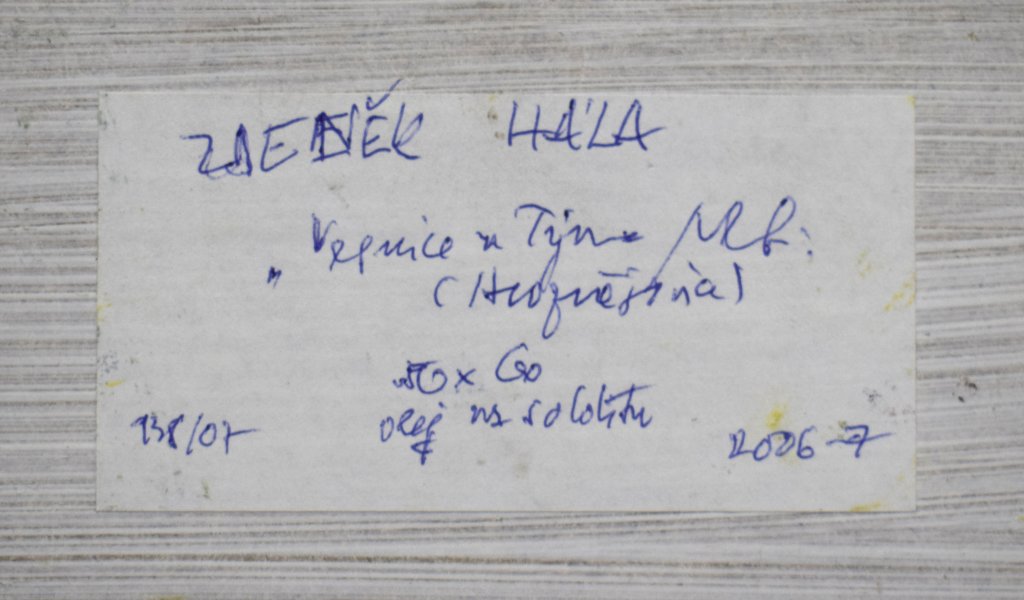 ZDENĚK HÁLA
" Vesnice u Týna
50 x 60
olej na sololitu
138/07
2006-7